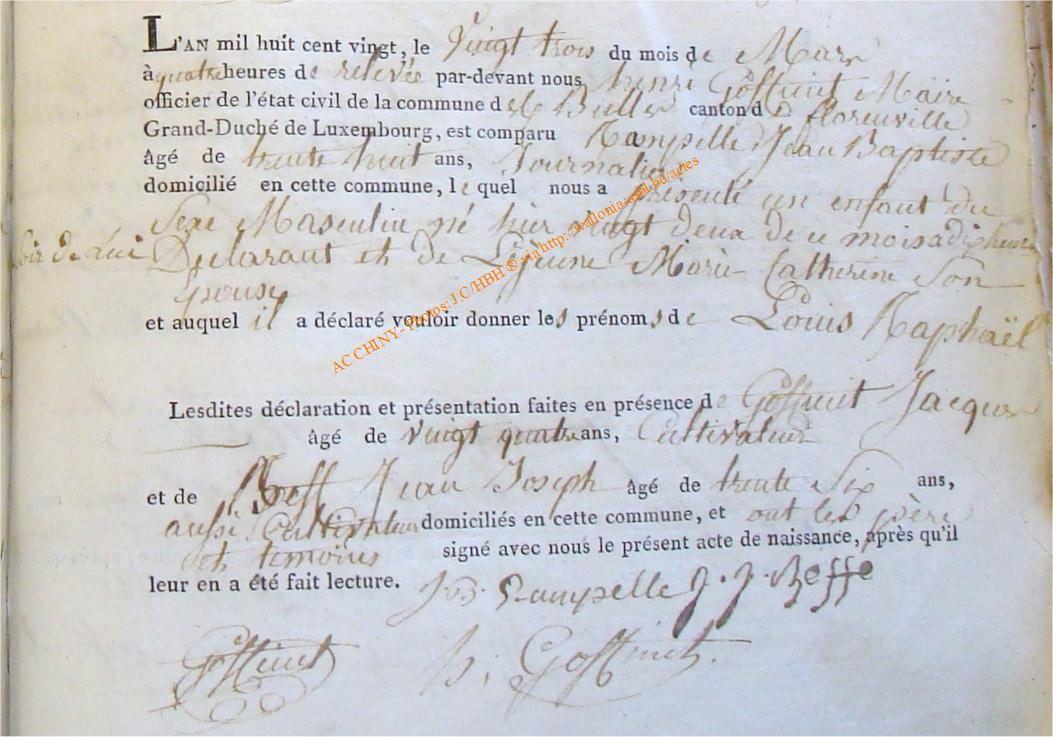 L'AN mil huit cent vingt, le Vingt trois du mois de Mars
à quatre heures de relevée par-devant nous henri Goffinet Maire
officier de l'état civil de la commune d canton de florenville
Grand-Duché de Luxembourg, est comparu Rampelle Jean Baptiste
âgé de trente huit ans, Journalier
domicilié en cette commune, le quel nous a présenté un enfant du
Sexe Masculin né hier vingt deux de ce mois a dix heures
soir de Lui Déclarant et de Lejeune Marie Catherine Son
épouse
et auquel il a déclaré vouloir donner les prénoms de Louis Raphaël
Lesdites déclaration et présentation faites en présence de Goffinet Jacques
âgé de vingt quatre ans, Cultivateur
et de Jean Joseph âgé de trente Six ans,
aussi Cultivateur domiciliés en cette commune, et ont les père
et temoins signé avec nous le présent acte de naissance, après qu'il
leur en a été fait lecture. J.B. Rampelle J. J. Reffe
Goffinet h. Goffinet.
AC CHINY - Photos: J C/HBH © via http://wallonia-asbl.be/actes